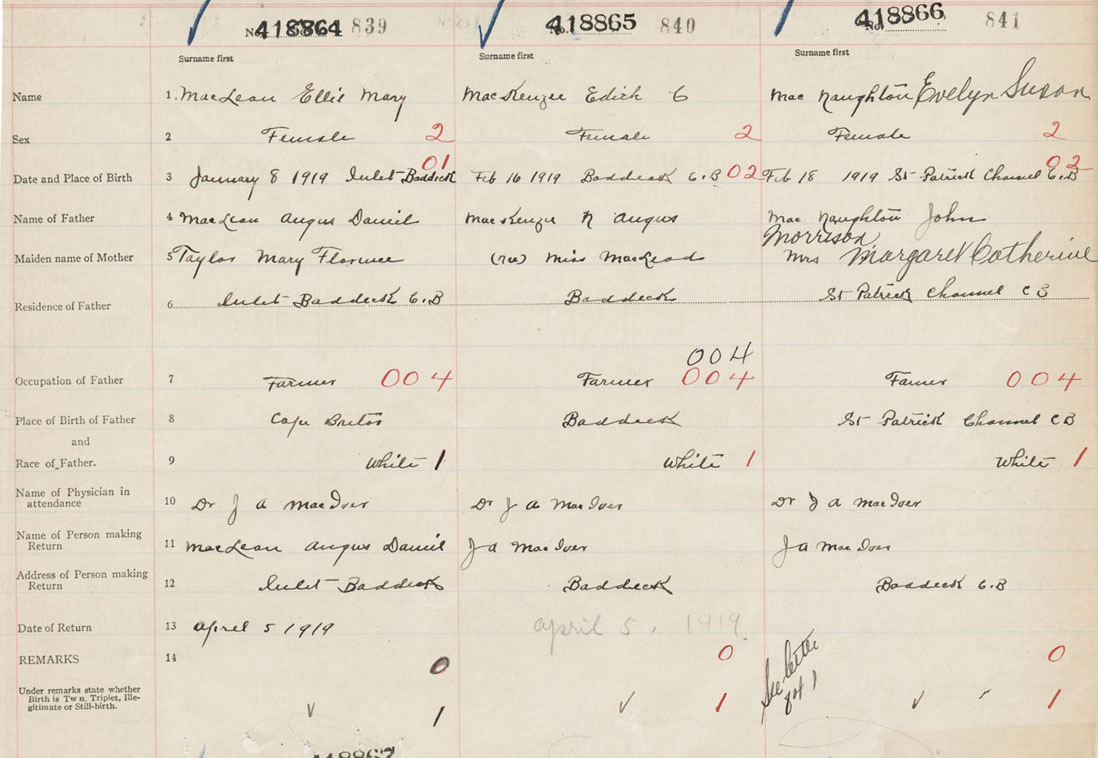 No. 418864 839 No. 418865 840 No. 418866 841
Surname first Surname first Surname first
Name 1. MacLean Ellie Mary MacKenzie Edith C MacNaughton Evelyn Susan
Sex 2 Female 2 Female 2 Female 2
01 02
Date and Place of Birth 3 January 8 1919 Inlet Baddeck Feb 16 1919 Baddeck C.B 02 Feb 18 1919 St Patrick Channel C.B
Name of Father 4 MacLean Angus Daniel MacKenzie N Angus MacNaughton John
Morrison
Maiden name of Mother 5 Taylor Mary Florence (nee) Miss MacLeod Mrs Margaret Catherine
Residence of Father 6 Inlet Baddeck C.B Baddeck St Patrick Channel C B
004
Occupation of Father 7 Farmer 004 Farmer 004 Farmer 004
Place of Birth of Father 8 Cape Breton Baddeck St Patrick Channel C B
and
Race of Father. 9 White 1 White 1 White 1
Name of Physician in
attendance 10 Dr J A MacIver Dr J A MacIver Dr J A MacIver
Name of Person making
Return 11 MacLean Angus Daniel J A MacIver J A MacIver
Address of Person making
Return 12 Inlet Baddeck Baddeck Baddeck C.B
Date of Return 13 April 5 1919 April 5, 1919
REMARKS 14 0 0 See letter 0
Under remarks state whether
Birth is Twn, Triplet, Ille-
gitimate or Still-birth. 1 1 1
418867